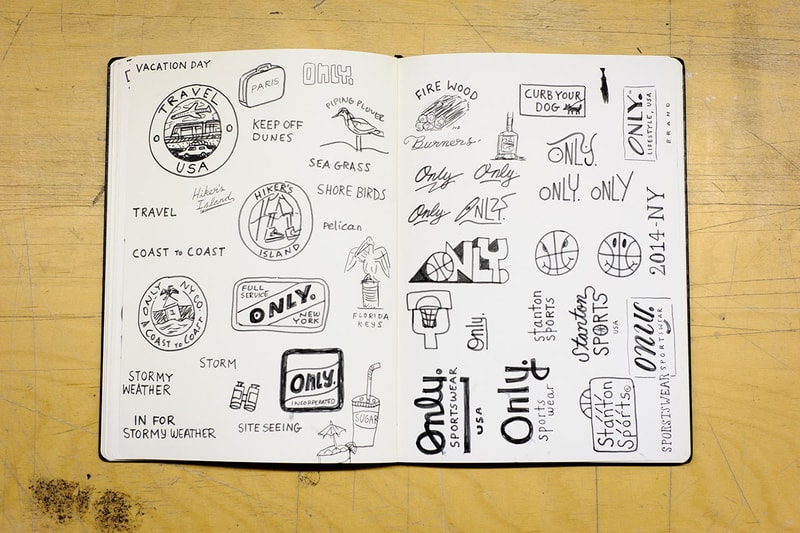 VACATION DAY
PARIS
ONLY.
TRAVEL
USA
PIPING PLOVER
KEEP OFF
DUNES
SEA GRASS
Hiker's
Island
HIKER'S
ISLAND
SHORE BIRDS
TRAVEL
pelican
COAST to COAST
ONLY NY CO
A COAST to COAST
FULL
SERVICE
ONLY.
NEW
YORK
FLORIDA
KEYS
STORM
STORMY
WEATHER
ONLY.
INCORPERATED
SUGAR
IN FOR
STORMY WEATHER
SITE SEEING
FIRE WOOD
Burners
CURB YOUR
DOG
ONLY.
LIFESTYLE, USA
BRAND
Only
Only
ONLY.
Only
ONLY.
ONLY.
ONLY
ONLY.
2014-NY
Only.
Stanton
SPORTS
Stanton
SPORTS
USA
only.
SPORTSWEAR
Only.
SPORTSWEAR
USA
Only.
sports
wear
Stanton
Sports
SPORSTSWEAR